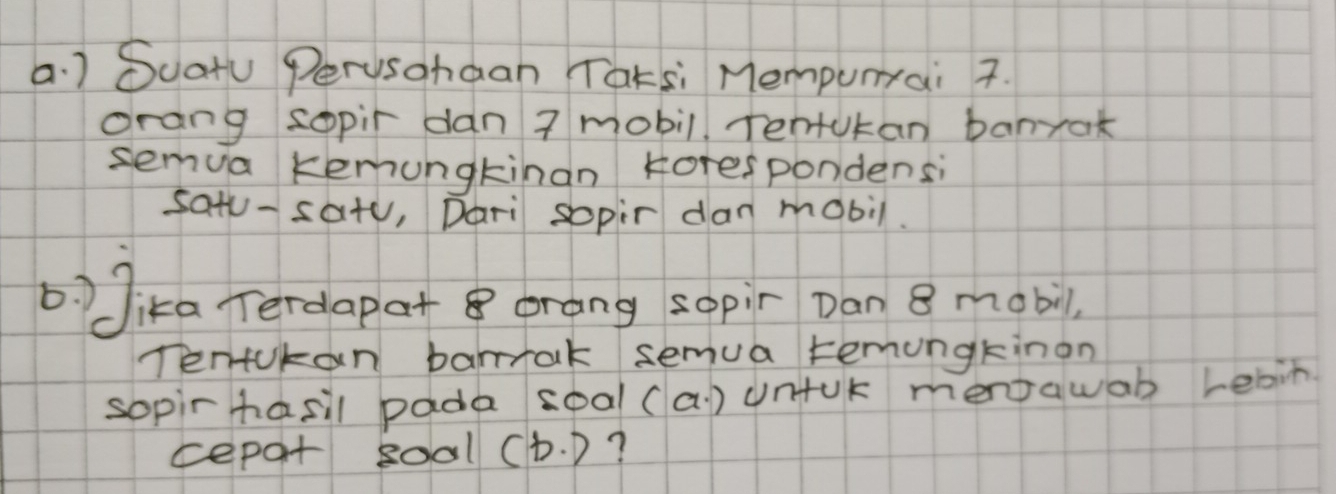 a.) Suatu Perusahaan Taksi Mempunyai 7.
orang sopir dan 7 mobil. Tentukan banyak
semua kemungkinan korespondensi
satu-satu, Dari sopir dan mobil.
b.) Jika Terdapat 8 orang sopir Dan 8 mobil,
Tentukan banyak semua kemungkinan
sopir hasil pada soal (a.) untuk menjawab Lebih
cepat soal (b.)?